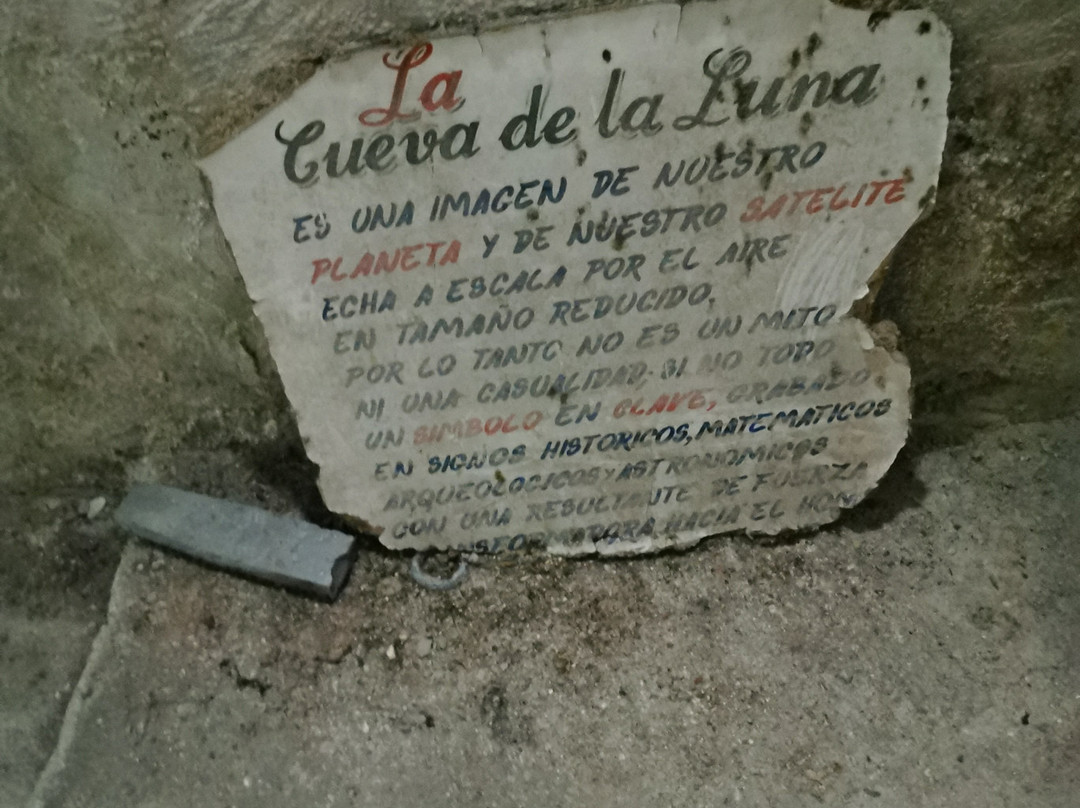 La
Cueva de la Luna
ES UNA IMAGEN DE NUESTRO
PLANETA Y DE NUESTRO SATELITE
ECHA A ESCALA POR EL AIRE
EN TAMAÑO REDUCIDO.
POR LO TANTO NO ES UN MITO
NI UNA CASUALIDAD, SI NO TODO
UN SIMBOLO EN CLAVE, GRABADO
EN SIGNOS HISTORICOS, MATEMATICOS
ARQUEOLOGICOS Y ASTRONOMICOS
CON UNA RESULTANTE DE FUERZA
HACIA EL